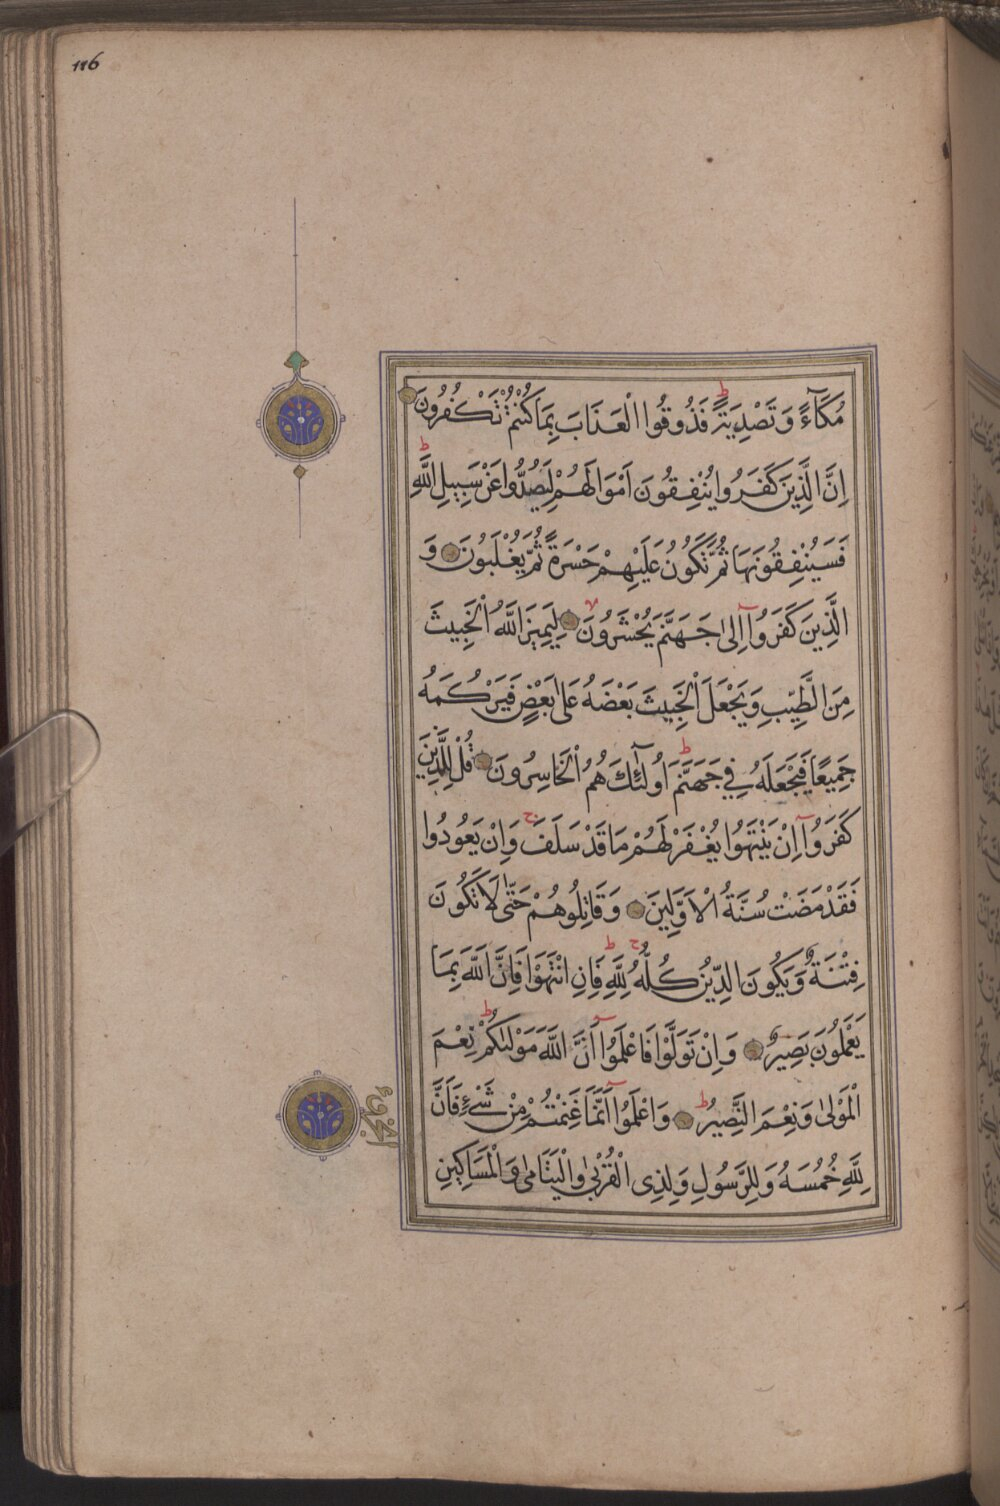 116
مُكَآءً وَتَصْدِيَةً فَذُوقُوا الْعَذَابَ بِمَا كُنْتُمْ تَكْفُرُونَ
اِنَّ الَّذِينَ كَفَرُوا يُنْفِقُونَ اَمْوَالَهُمْ لِيَصُدُّوا عَنْ سَبِيلِ اللَّهِ
فَسَيُنْفِقُونَهَا ثُمَّ تَكُونُ عَلَيْهِمْ حَسْرَةً ثُمَّ يُغْلَبُونَ وَ
الَّذِينَ كَفَرُوآ اِلىٰ جَهَنَّمَ يُحْشَرُونَ لِيَمِيزَ اللَّهُ الْخَبِيثَ
مِنَ الطَّيِّبِ وَيَجْعَلَ الْخَبِيثَ بَعْضَهُ عَلىٰ بَعْضٍ فَيَرْكُمَهُ
جَمِيعًا فَيَجْعَلَهُ فِي جَهَنَّمَ اُولٰٓئِكَ هُمُ الْخَاسِرُونَ قُلْ لِلَّذِينَ
كَفَرُوآ اِنْ يَنْتَهُوا يُغْفَرْ لَهُمْ مَا قَدْ سَلَفَ وَاِنْ يَعُودُوا
فَقَدْ مَضَتْ سُنَّةُ الْاَوَّلِينَ وَقَاتِلُوهُمْ حَتّٰى لَا تَكُونَ
فِتْنَةٌ وَيَكُونَ الدِّينُ كُلُّهُ لِلَّهِ فَاِنِ انْتَهَوْا فَاِنَّ اللَّهَ بِمَا
يَعْمَلُونَ بَصِيرٌ وَاِنْ تَوَلَّوْا فَاعْلَمُوآ اَنَّ اللَّهَ مَوْلٰيكُمْ نِعْمَ
الْمَوْلىٰ وَنِعْمَ النَّصِيرُ وَاعْلَمُوآ اَنَّمَا غَنِمْتُمْ مِنْ شَيْءٍ فَاَنَّ
لِلَّهِ خُمُسَهُ وَلِلرَّسُولِ وَلِذِى الْقُرْبىٰ وَالْيَتَامىٰ وَالْمَسَاكِينِ